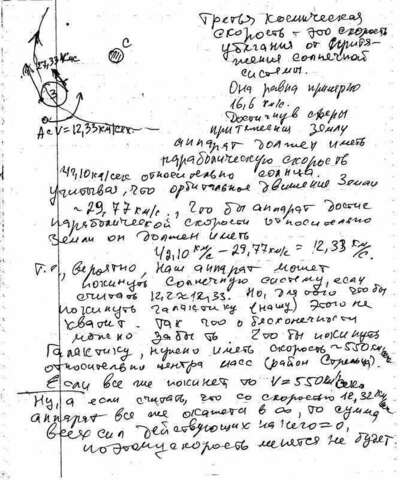 Третья Космическая
скорость - это скорость
убегания от притя-
жения солнечной
системы.
Она равна примерно
16,6 км/с.
C
27,33 км/с
З
A с V = 12,33 км/сек.
Достигнув сферы
притяжения Земли
аппарат должен иметь
параболическую скорость
42,10 км/сек относительно солнца.
учитывая, что орбитальное движение Земли
~ 29,77 км/с., что бы аппарат достиг
параболической скорости относительно
Земли он должен иметь
42,10 км/с - 29,77 км/с = 12,33 км/с.
Т.о., вероятно, наш аппарат может
покинуть Солнечную систему, если
считать 12,2 ≈ 12,33. Но, для того что бы
покинуть галактику (нашу) этого не
хватит. Так что о бесконечности
можно забыть. Что бы покинуть
Галактику, нужно иметь скорость ~ 550 км/сек
относительно центра масс (район Стрельца).
Если все же покинет то V = 550 км/сек
Ну, а если считать, что со скоростью км/сек
аппарат все же окажется в ∞, то сумма
всех сил действующих на него = 0,
поэтому скорость менятся не будет